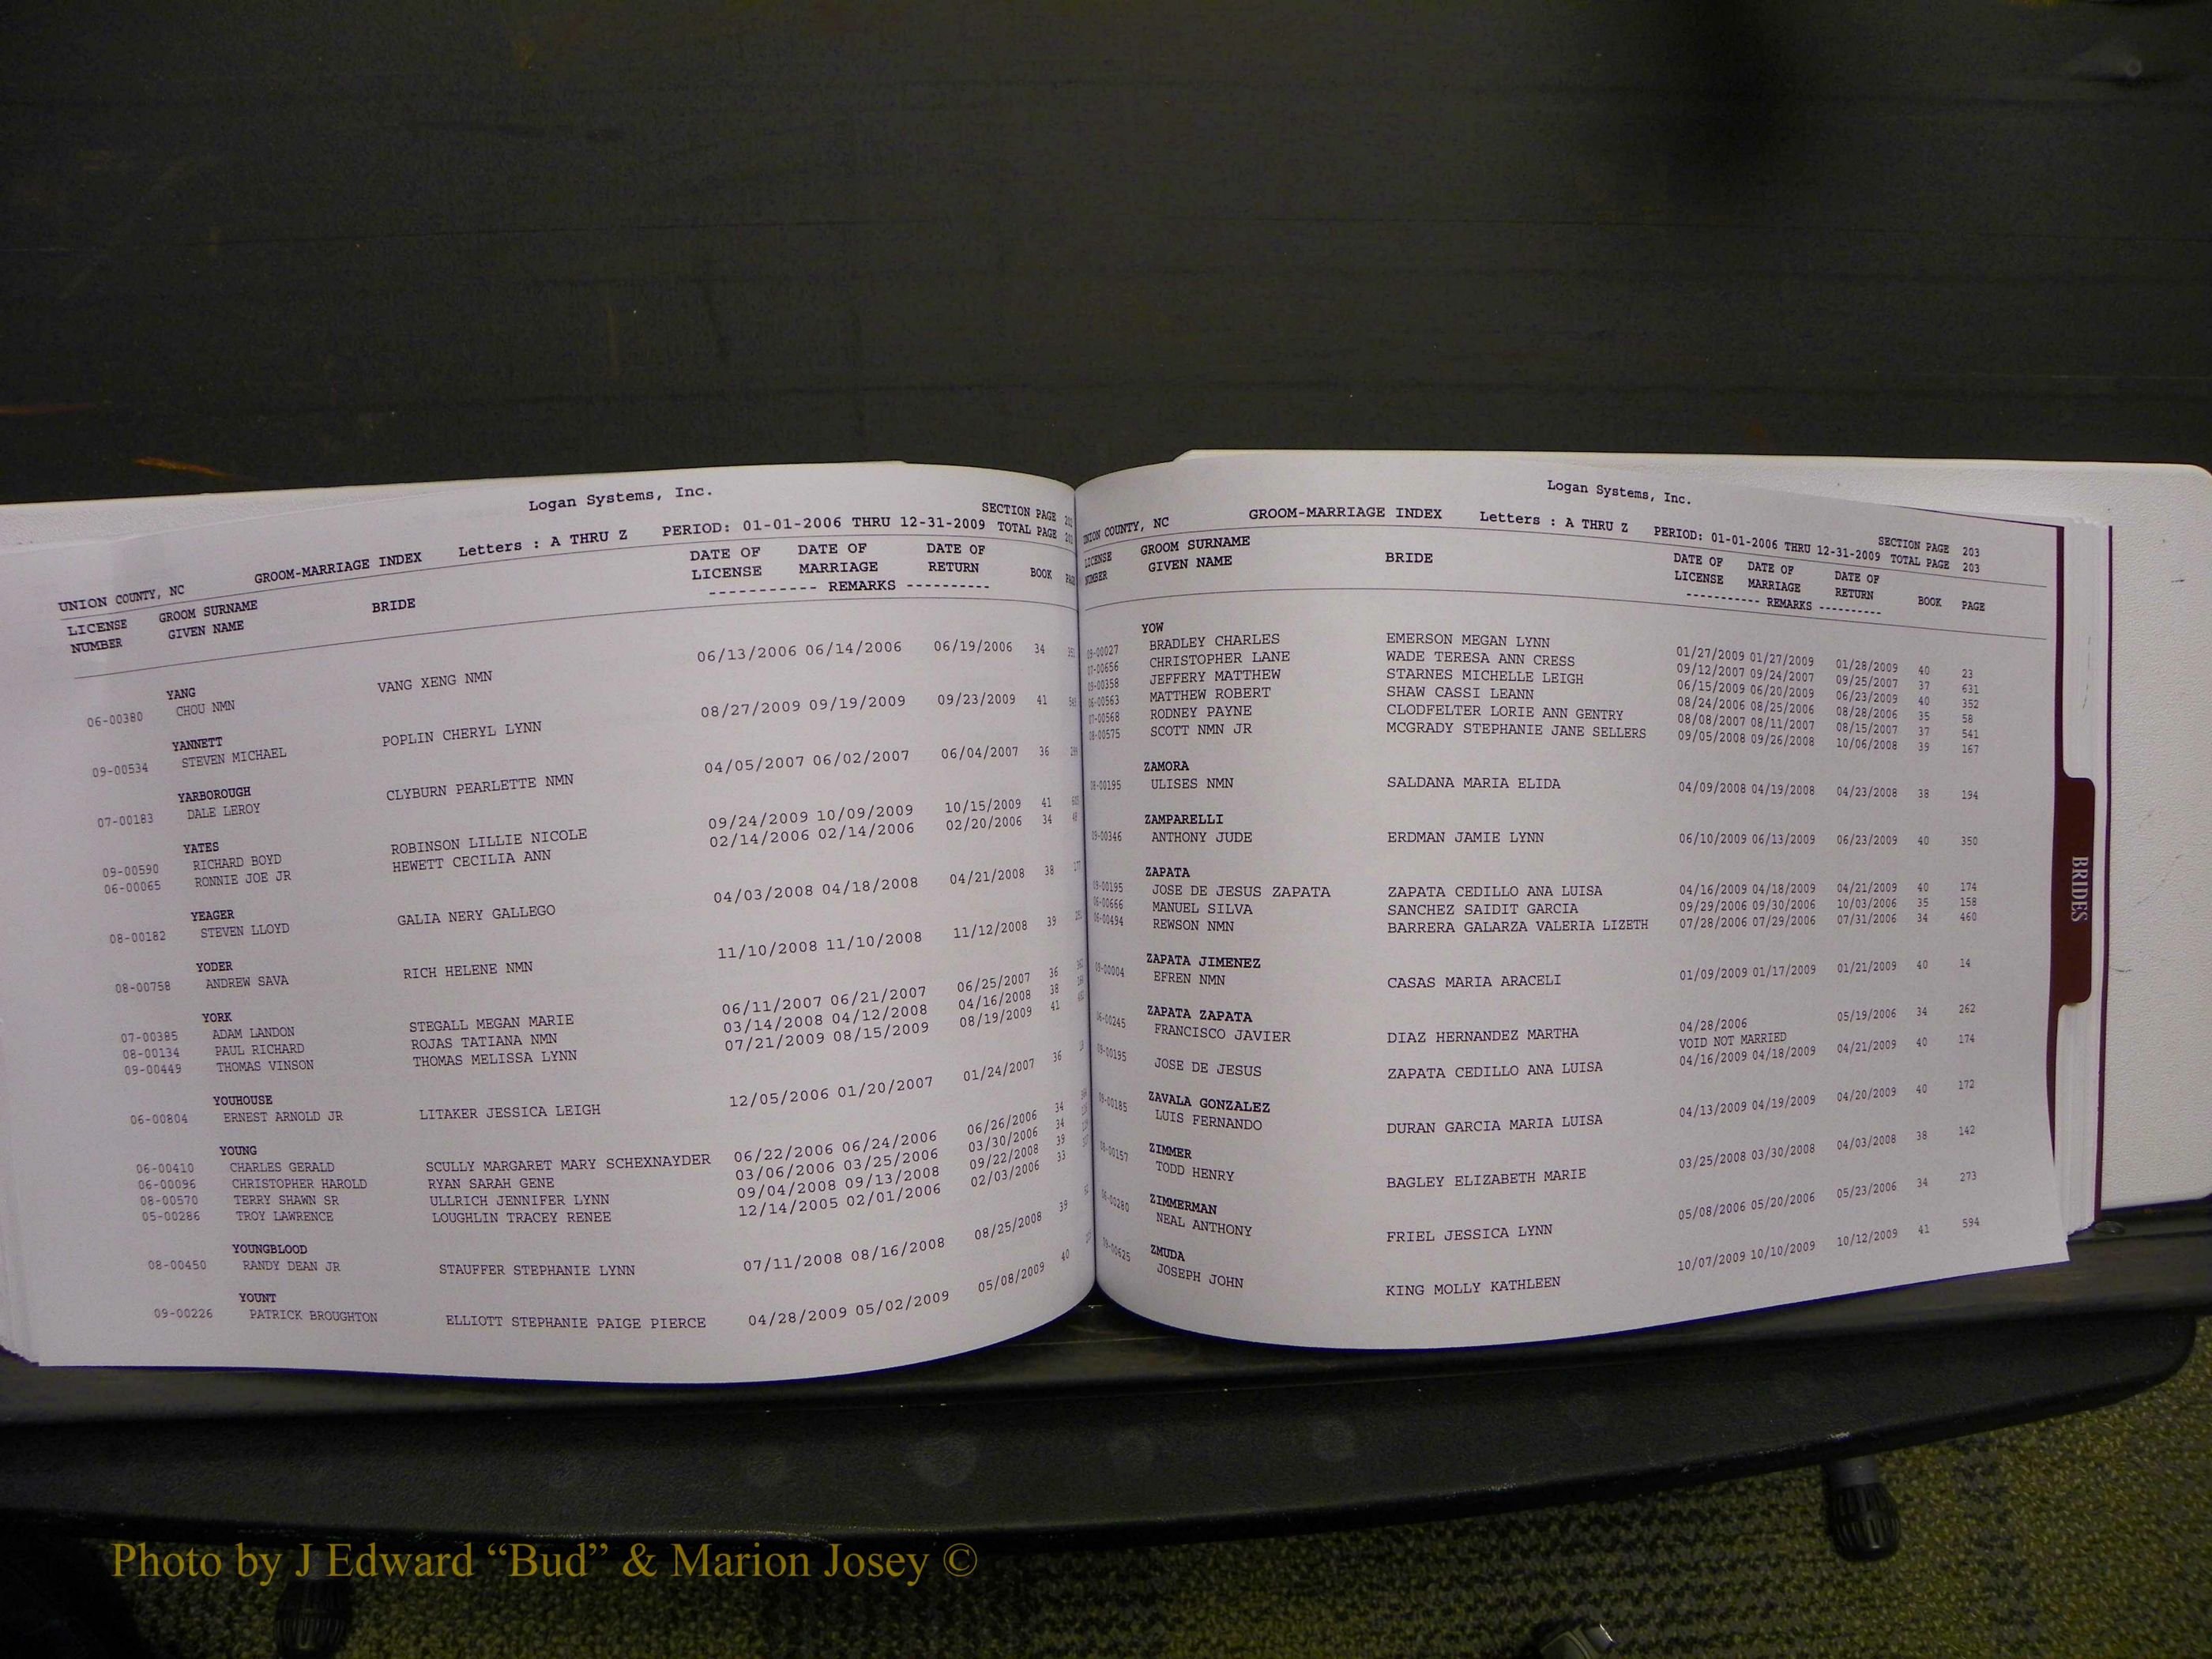 Logan Systems, Inc.
SECTION PAGE
UNION COUNTY, NC GROOM-MARRIAGE INDEX Letters : A THRU Z PERIOD: 01-01-2006 THRU 12-31-2009 TOTAL PAGE
LICENSE GROOM SURNAME BRIDE DATE OF DATE OF DATE OF
NUMBER GIVEN NAME LICENSE MARRIAGE RETURN BOOK
----------- REMARKS ----------
YANG
06-00380 CHOU NMN VANG XENG NMN 06/13/2006 06/14/2006 06/19/2006 34
YANNETT
09-00534 STEVEN MICHAEL POPLIN CHERYL LYNN 08/27/2009 09/19/2009 09/23/2009 41
YARBOROUGH
07-00183 DALE LEROY CLYBURN PEARLETTE NMN 04/05/2007 06/02/2007 06/04/2007 36
YATES
09-00590 RICHARD BOYD ROBINSON LILLIE NICOLE 09/24/2009 10/09/2009 10/15/2009 41
06-00065 RONNIE JOE JR HEWETT CECILIA ANN 02/14/2006 02/14/2006 02/20/2006 34
YEAGER
08-00182 STEVEN LLOYD GALIA NERY GALLEGO 04/03/2008 04/18/2008 04/21/2008 38
YODER
08-00758 ANDREW SAVA RICH HELENE NMN 11/10/2008 11/10/2008 11/12/2008 39
YORK
07-00385 ADAM LANDON STEGALL MEGAN MARIE 06/11/2007 06/21/2007 06/25/2007 36
08-00134 PAUL RICHARD ROJAS TATIANA NMN 03/14/2008 04/12/2008 04/16/2008 38
09-00449 THOMAS VINSON THOMAS MELISSA LYNN 07/21/2009 08/15/2009 08/19/2009 41
YOUHOUSE
06-00804 ERNEST ARNOLD JR LITAKER JESSICA LEIGH 12/05/2006 01/20/2007 01/24/2007 36
YOUNG
06-00410 CHARLES GERALD SCULLY MARGARET MARY SCHEXNAYDER 06/22/2006 06/24/2006 06/26/2006 34
06-00096 CHRISTOPHER HAROLD RYAN SARAH GENE 03/06/2006 03/25/2006 03/30/2006 34
08-00570 TERRY SHAWN SR ULLRICH JENNIFER LYNN 09/04/2008 09/13/2008 09/22/2008 39
05-00286 TROY LAWRENCE LOUGHLIN TRACEY RENEE 12/14/2005 02/01/2006 02/03/2006 33
YOUNGBLOOD
08-00450 RANDY DEAN JR STAUFFER STEPHANIE LYNN 07/11/2008 08/16/2008 08/25/2008 39
YOUNT
09-00226 PATRICK BROUGHTON ELLIOTT STEPHANIE PAIGE PIERCE 04/28/2009 05/02/2009 05/08/2009 40
Logan Systems, Inc.
SECTION PAGE 203
UNION COUNTY, NC GROOM-MARRIAGE INDEX Letters : A THRU Z PERIOD: 01-01-2006 THRU 12-31-2009 TOTAL PAGE 203
LICENSE GROOM SURNAME BRIDE DATE OF DATE OF DATE OF
NUMBER GIVEN NAME LICENSE MARRIAGE RETURN BOOK PAGE
----------- REMARKS ----------
YOW
09-00027 BRADLEY CHARLES EMERSON MEGAN LYNN 01/27/2009 01/27/2009 01/28/2009 40 23
07-00656 CHRISTOPHER LANE WADE TERESA ANN CRESS 09/12/2007 09/24/2007 09/25/2007 37 631
09-00358 JEFFERY MATTHEW STARNES MICHELLE LEIGH 06/15/2009 06/20/2009 06/23/2009 40 352
06-00563 MATTHEW ROBERT SHAW CASSI LEANN 08/24/2006 08/25/2006 08/28/2006 35 58
07-00568 RODNEY PAYNE CLODFELTER LORIE ANN GENTRY 08/08/2007 08/11/2007 08/15/2007 37 541
08-00575 SCOTT NMN JR MCGRADY STEPHANIE JANE SELLERS 09/05/2008 09/26/2008 10/06/2008 39 167
ZAMORA
08-00195 ULISES NMN SALDANA MARIA ELIDA 04/09/2008 04/19/2008 04/23/2008 38 194
ZAMPARELLI
09-00346 ANTHONY JUDE ERDMAN JAMIE LYNN 06/10/2009 06/13/2009 06/23/2009 40 350
ZAPATA
09-00195 JOSE DE JESUS ZAPATA ZAPATA CEDILLO ANA LUISA 04/16/2009 04/18/2009 04/21/2009 40 174
06-00666 MANUEL SILVA SANCHEZ SAIDIT GARCIA 09/29/2006 09/30/2006 10/03/2006 35 158
06-00494 REWSON NMN BARRERA GALARZA VALERIA LIZETH 07/28/2006 07/29/2006 07/31/2006 34 460
ZAPATA JIMENEZ
09-00004 EFREN NMN CASAS MARIA ARACELI 01/09/2009 01/17/2009 01/21/2009 40 14
ZAPATA ZAPATA
06-00245 FRANCISCO JAVIER DIAZ HERNANDEZ MARTHA 04/28/2006 05/19/2006 34 262
VOID NOT MARRIED
09-00195 JOSE DE JESUS ZAPATA CEDILLO ANA LUISA 04/16/2009 04/18/2009 04/21/2009 40 174
ZAVALA GONZALEZ
09-00185 LUIS FERNANDO DURAN GARCIA MARIA LUISA 04/13/2009 04/19/2009 04/20/2009 40 172
ZIMMER
08-00157 TODD HENRY BAGLEY ELIZABETH MARIE 03/25/2008 03/30/2008 04/03/2008 38 142
ZIMMERMAN
06-00280 NEAL ANTHONY FRIEL JESSICA LYNN 05/08/2006 05/20/2006 05/23/2006 34 273
ZMUDA
09-00625 JOSEPH JOHN KING MOLLY KATHLEEN 10/07/2009 10/10/2009 10/12/2009 41 594
BRIDES
Photo by J Edward “Bud” & Marion Josey ©